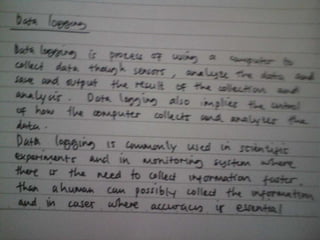 Data logging
Data logging is process of using a computer to
collect data though sensors, analyze the data and
save and output the result of the collection and
analysis. Data logging also implies the control
of how the computer collects and analyzes the
data.
Data logging is commonly used in scientific
experiments and in monitoring system where
there is the need to collect information faster
than a human can possibly collect the information
and in cases where accuracy is essential